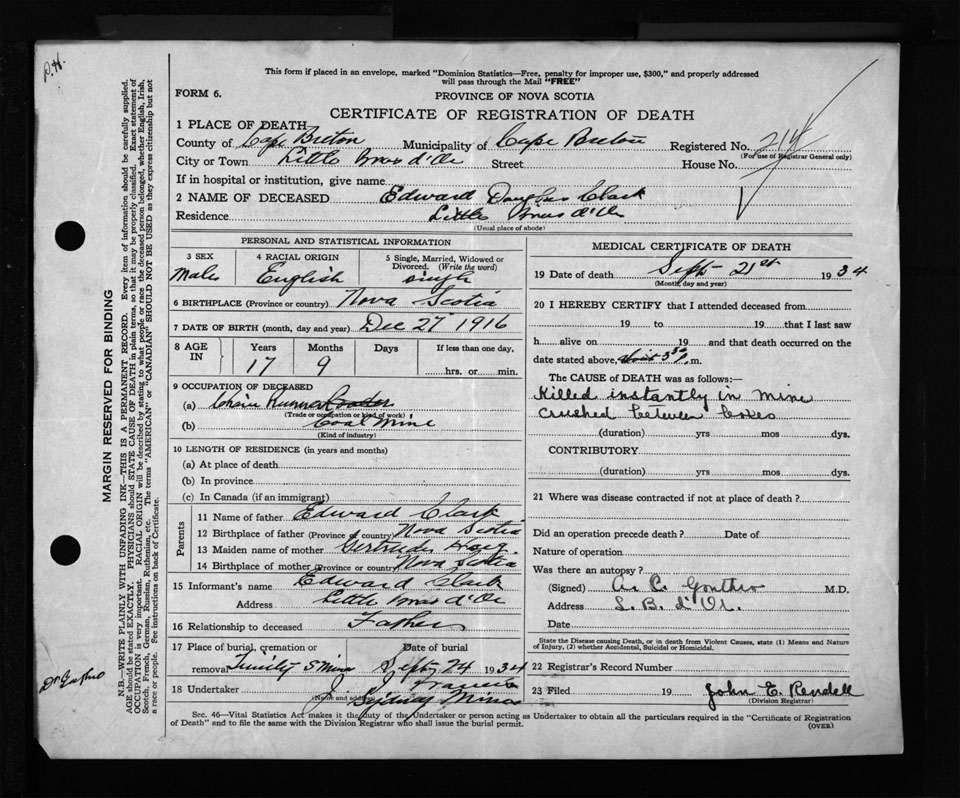 D.H.
This form if placed in an envelope, marked "Dominion Statistics—Free, penalty for improper use, $300," and properly addressed
will pass through the Mail "FREE"
FORM 6.
PROVINCE OF NOVA SCOTIA
CERTIFICATE OF REGISTRATION OF DEATH
1 PLACE OF DEATH
County of Cape Breton Municipality of Cape Breton Registered No.
(For use of Registrar General only)
City or Town Little Bras d'Or Street House No.
If in hospital or institution, give name
2 NAME OF DECEASED Edward Douglas Clark
Residence Little Bras d'Or
(Usual place of abode)
PERSONAL AND STATISTICAL INFORMATION
3 SEX Male
4 RACIAL ORIGIN English
5 Single, Married, Widowed or
Divorced. (Write the word)
single
6 BIRTHPLACE (Province or country) Nova Scotia
7 DATE OF BIRTH (month, day and year) Dec 27 1916
8 AGE IN Years Months Days If less than one day,
17 9 hrs. or min.
9 OCCUPATION OF DECEASED
(a) Chain Runner
(Trade or occupation or kind of work)
(b) Coal Mine
(Kind of industry)
10 LENGTH OF RESIDENCE (in years and months)
(a) At place of death
(b) In province
(c) In Canada (if an immigrant)
Parents
11 Name of father Edward Clark
12 Birthplace of father (Province or country) Nova Scotia
13 Maiden name of mother Gertrude
14 Birthplace of mother (Province or country) Nova Scotia
15 Informant's name Edward Clark
Address Little Bras d'Or
16 Relationship to deceased Father
17 Place of burial, cremation or Date of burial
removal Trinity S Mines Sept 24 1934
18 Undertaker J. Francis
(Name and address) Sydney Mines
MEDICAL CERTIFICATE OF DEATH
19 Date of death Sept 21st 1934
(Month, day and year)
20 I HEREBY CERTIFY that I attended deceased from
19 to 19 that I last saw
h alive on 19 and that death occurred on the
date stated above, m.
The CAUSE of DEATH was as follows:—
Killed instantly in mine
crushed between boxes
(duration) yrs mos dys.
CONTRIBUTORY
(duration) yrs mos dys.
21 Where was disease contracted if not at place of death?
Did an operation precede death? Date of
Nature of operation
Was there an autopsy?
(Signed) A. C. Gouthro M.D.
Address L. B. d'Or.
Date
State the Disease causing Death, or in death from Violent Causes, state (1) Means and Nature
of Injury, (2) whether Accidental, Suicidal or Homicidal.
22 Registrar's Record Number
23 Filed 19 John E. Rendell
(Division Registrar)
Sec. 46—Vital Statistics Act makes it the duty of the Undertaker or person acting as Undertaker to obtain all the particulars required in the "Certificate of Registration
of Death" and to file the same with the Division Registrar who shall issue the burial permit.
(OVER)
MARGIN RESERVED FOR BINDING
N.B.—WRITE PLAINLY WITH UNFADING INK—THIS IS A PERMANENT RECORD. Every item of information should be carefully supplied.
AGE should be stated EXACTLY. PHYSICIANS should STATE CAUSE OF DEATH in plain terms, so that it may be properly classified. Exact statement of
OCCUPATION is very important. RACIAL ORIGIN will be described by stating to what people or race the deceased person belonged, whether English, Irish,
Scotch, French, German, Russian, Ruthenian, etc. The terms "AMERICAN" or "CANADIAN" SHOULD NOT BE USED as they express citizenship but not
a race or people. See instructions on back of Certificate.